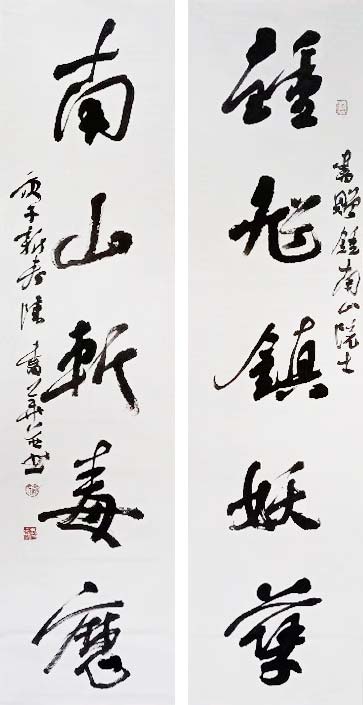 書贈鍾南山院士
鍾馗鎮妖孽
南山斬毒魔
庚子新春陳